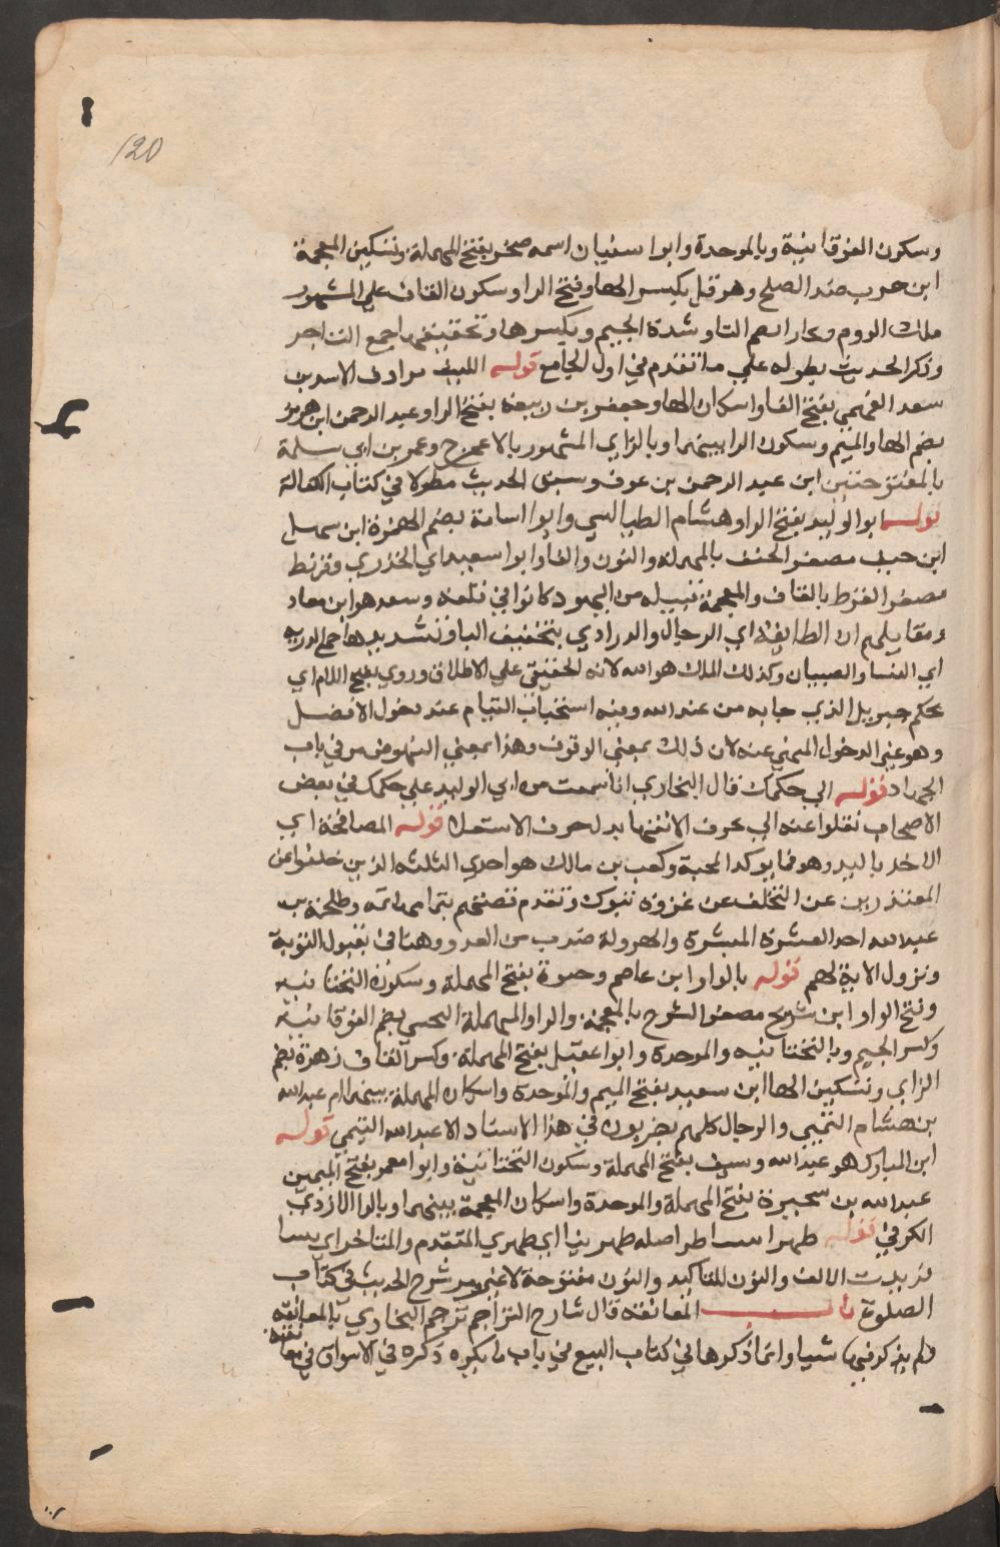 120
وسكون الفوقانية وبالموحدة وابوا سفيان اسمه صخر بفتح المهملة وتسكين المعجمة
ابن حرب ضد الصلح وهرقل بكسر الها وفتح الرا وسكون القاف علي المشهور
ملك الروم وتجار بضم التا وشدة الجيم وبكسرها وتخفيفها جمع التاجر
وذكر الحديث بطوله علي ما تقدم في اول الجامع قوله الليث مرادف الاسد بن
سعد الفهمي بفتح الفا واسكان الها وجعفر بن ربيعة بفتح الرا وعبد الرحمن ابن هرمز
بضم الها والميم وسكون الرا بينهما وبالزاي المشهور بالاعرج وعمر بن ابي سلمة
بالمفتوحتين ابن عبد الرحمن بن عوف وسبق الحديث مطولا في كتاب الكفالة
قوله ابو الوليد بفتح الواو هشام الطيالسي وابوا اسامة بضم الهمزة ابن سهل
ابن حنيف مصغر الحنف بالمهملة والنون والفا وابوا سعيد اي الخدري وقريظ
مصغر القرظ بالقاف والمعجمة قبيله من اليهود كانوا في قلعة وسعد هو ابن معاد
ومقايلهم ان الطايفة اي الرجال والدرادي بتخفيف اليا وتشديدها جمع الدريه
اي النسا والصبيان وكذلك الملك هو الله لانه الحقيقي علي الاطلاق وروي بفتح اللام اي
بحكم جبريل الذي جا به من عند الله وفيه استحباب القيام عند دخول الافضل
وهو غير الدخول المنهي عنه لان ذلك بمعني الوقوف وهذا بمعني النهوض مر في باب
الجهاد قوله الي حكمك قال البخاري انا سمعت من ابي الوليد علي حكمك في بعض
الاصحاب نقلوا عنه الي بحرف الانتها بدل حرف الاستعلا قوله المصافحة اي
الاخد باليد وهو مما يوكد المحبة وكعب بن مالك هو احدي الثلثه الذين خلفوا من
المعتذرين عن التخلف عن غزوة تبوك وتقدم قصتهم بتمامها ثمه وطلحة بن
عبد الله احد العشرة المبشرة والهرولة ضرب من العدو وهنا في بقبول التوبة
ونزول الاية لهم قوله بالواو ابن عاصم وحيوة بفتح المهملة وسكون التحتانيه
وفتح الواو ابن شريح مصغر الشرح بالمعجمة والرا والمهملة التجيبي بضم الفوقانيه
وكسر الجيم وبالتحتانيه والموحدة وابوا عقيل بفتح المهملة وكسر القاف زهرة بضم
الزاي وتسكين الها ابن معبد بفتح الميم والموحدة واسكان المهملة بينهما ام عبد الله
بن هشام التيمي والرجال كلهم بصريون في هذا الاسناد الا عبد الله التيمي قوله
ابن المبارك هو عبد الله وسيف بفتح المهملة وسكون التحتانية وابوا معمر بفتح الميمين
عبد الله بن سخبرة بفتح المهملة والموحدة واسكان المعجمة بينهما وبالرا الازدي
الكوفي قوله ظهرا اصله ظهرينا اي ظهري المتقدم والمتاخر اي بينا
فزيدت الالف والنون للتاكيد والنون مفتوحة لا غير ومر شرح الحديث في كتاب
الصلوة باب المعانقة قال شارح التراجم ترجم البخاري بالمعانقة
ولم يذكر فيها شيا وانما ذكرها في كتاب البيع في باب ما يكره ذكره في الاسواق في معانقة